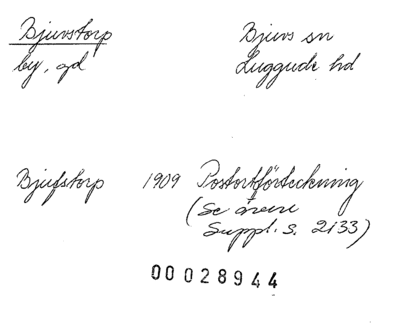 Bjuvstorp Bjuvs sn
by, gd Luggude hd
Bjufstorp 1909 Postortförteckning
(Se även
Suppl. s. 2133)
00028944